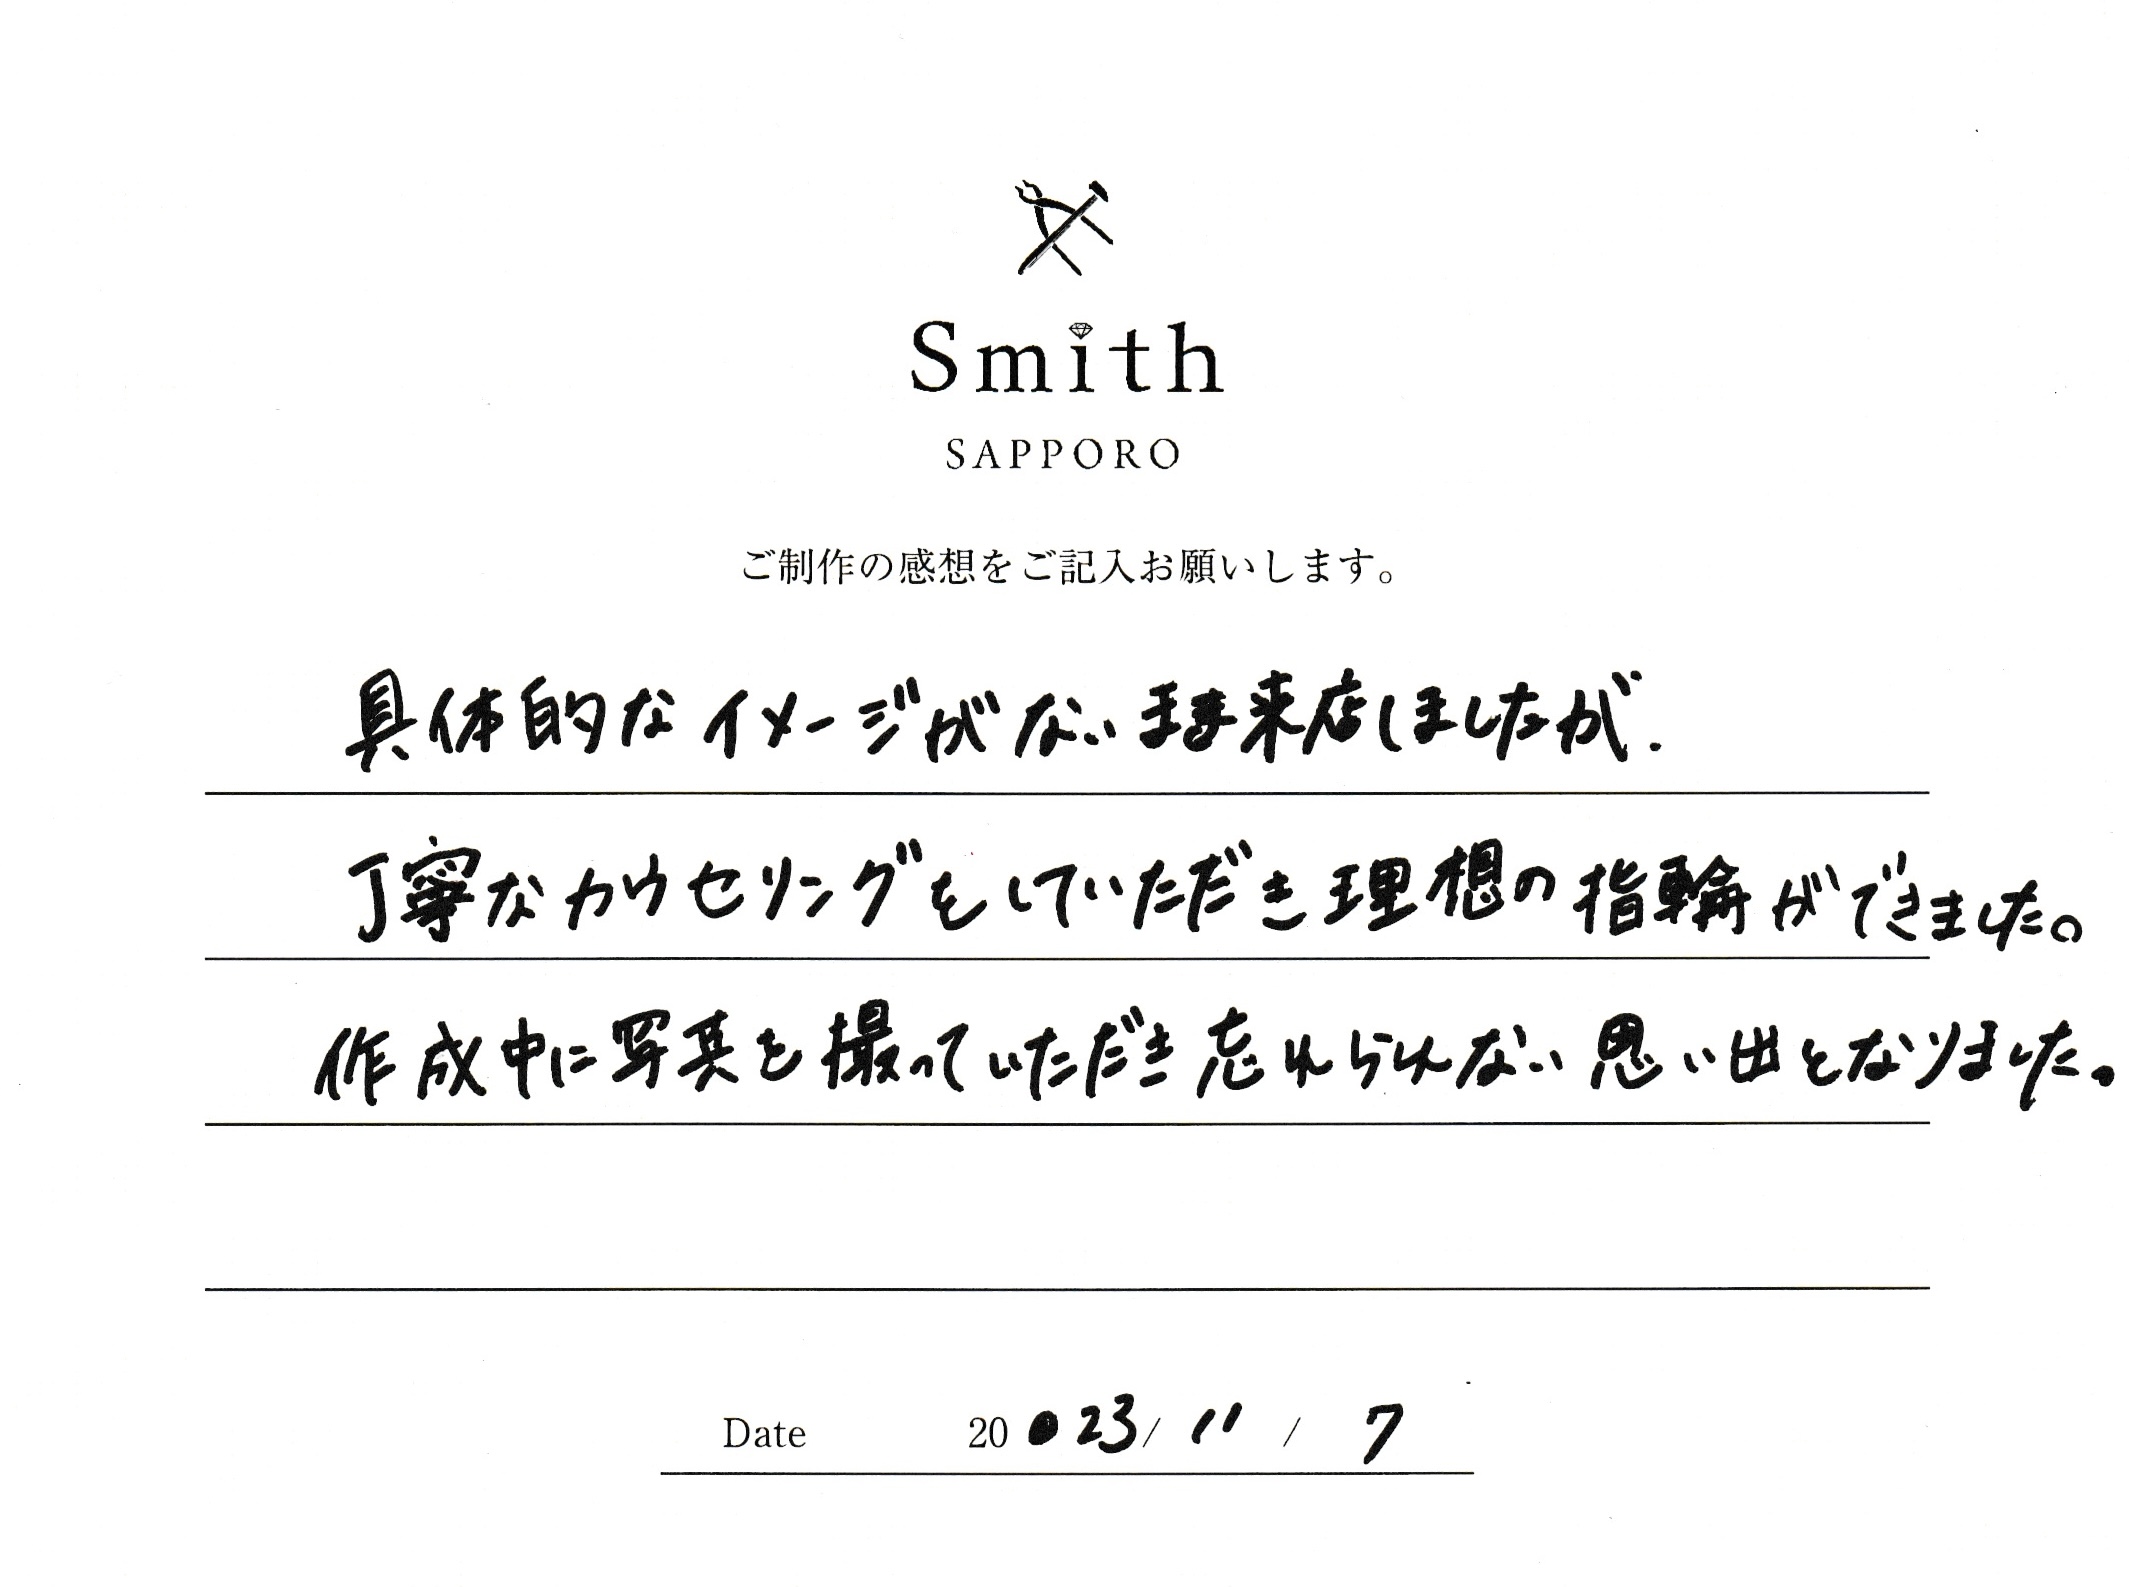 Smith
SAPPORO
ご制作の感想をご記入お願いします。
具体的なイメージがないまま来店しましたが.
丁寧なカウセリングをしていただき理想の指輪ができました。
作成中に写真を撮っていただき忘れられない思い出となりました。
Date 20 23/ 11 / 7